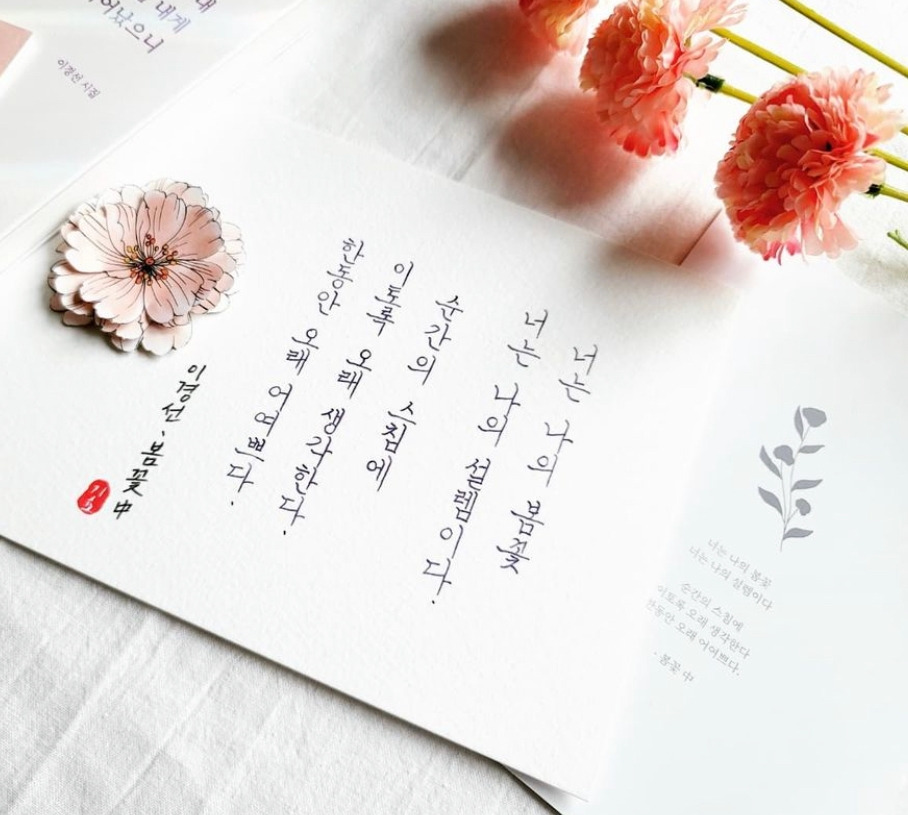 내게
이경선 시집
너는 나의 봄꽃
너는 나의 설렘이다.
순간의 스침에
이토록 오래 생각한다.
한동안 오래 어여쁘다.
이경선, 봄꽃 中
너는 나의 봄꽃
너는 나의 설렘이다
순간의 스침에
이토록 오래 생각한다
한동안 오래 어여쁘다.
- 봄꽃 中